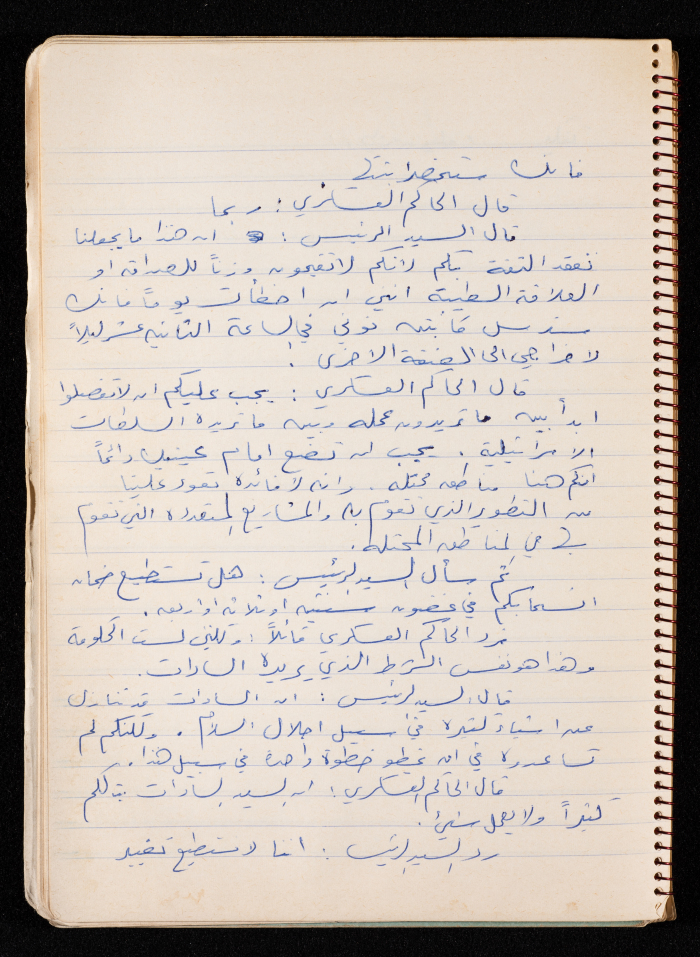 فانك ستخضر ابنتي
قال الحاكم العسكري : ربما
قال السيد الرئيس : ان هذا ما يجعلنا
نفقد الثقة بكم لانكم لا تقيمون وزناً للصداقة او
العلاقة الطيبة انني ان اخطأت يوماً فانك
سترسل كابتن توني في الساعة الثانيه عشر ليلاً
لاخراجي الى الضفة الاخرى .
قال الحاكم العسكري : يجب عليكم ان لا تفصلوا
ابداً بين ما تريدون عمله وبين ما تريده السلطات
الاسرائيلية . يجب ان تضع امام عينيك دائماً
انكم هنا مناطق محتله . وانه لا فائدة تعود علينا
من التطوير الذي تقوم به والمشاريع المتعدده التي تقوم
في المناطق المحتله .
ثم سأل السيد الرئيس : هل تستطيع ضمان
انسحابكم في غضون سنتين او ثلاثه او اربعه .
فرد الحاكم العسكري قائلاً : ولكنني لست الحكومة
وهذا هو نفس الشرط الذي يريده السادات .
قال السيد الرئيس : ان السادات قد تنازل
عن اشياء كثيره في سبيل احلال السلام . ولكنكم لم
تساعدوه في ان يخطو خطوة واحدة في سبيل هذا .
قال الحاكم العسكري : ان السيد السادات يتكلم
كثيراً ولا يعمل شيئ .
رد السيد الرئيس : اننا لا نستطيع تغيير